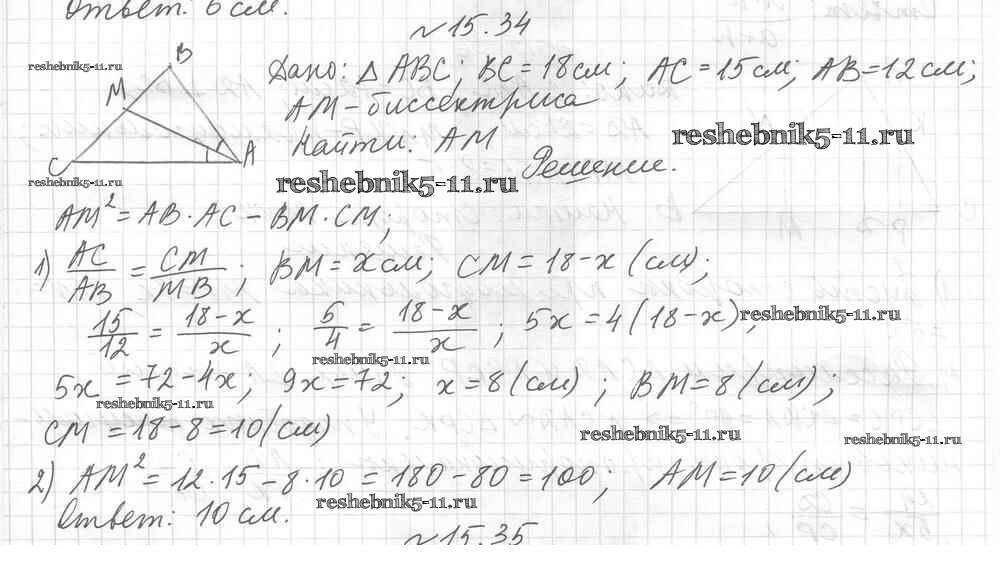 Ответ: 6 см.
№15.34
reshebnik5-11.ru
B
M
C
A
reshebnik5-11.ru
Дано: △ ABC; BC = 18 см; AC = 15 см; AB = 12 см;
AM - биссектриса
reshebnik5-11.ru
Найти: AM
Решение.
reshebnik5-11.ru
AM² = AB · AC - BM · CM;
1) AC/AB = CM/MB; BM = x см; CM = 18 - x (см);
15/12 = 18-x/x; 5/4 = 18-x/x; 5x = 4(18-x);
reshebnik5-11.ru
reshebnik5-11.ru
5x = 72 - 4x; 9x = 72; x = 8 (см); BM = 8 (см);
reshebnik5-11.ru
CM = 18 - 8 = 10 (см)
reshebnik5-11.ru
reshebnik5-11.ru
2) AM² = 12 · 15 - 8 · 10 = 180 - 80 = 100; AM = 10 (см)
reshebnik5-11.ru
Ответ: 10 см.
№15.35